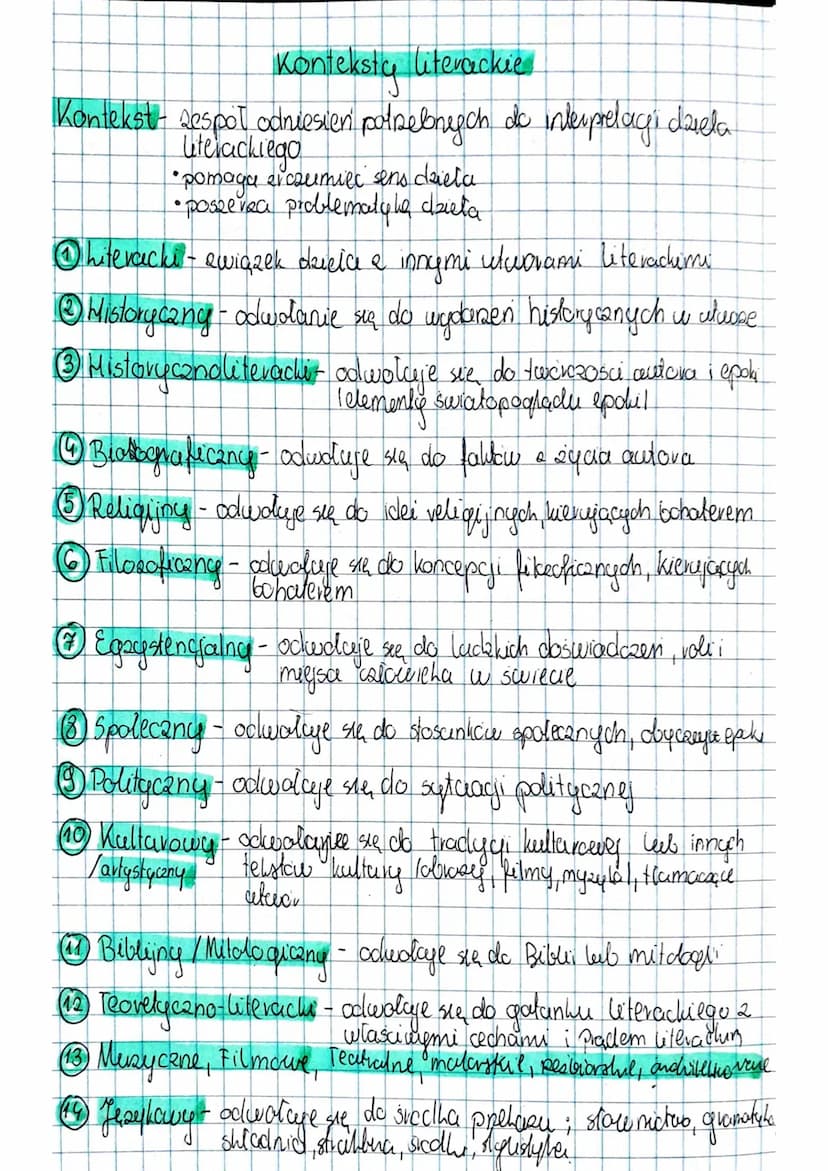 Konteksty literackie
Kontekst - zespół odniesień potrzebnych do interpretacji dzieła
literackiego
• pomaga zrozumieć sens dzieła
• poszerza problematykę dzieła
① Literacki - związek dzieła z innymi utworami literackimi
② Historyczny - odwołanie się do wydarzeń historycznych w utworze
③ Historycznoliteracki - odwołuje się do twórczości autora i epoki
(elementy światopoglądu epoki)
④ Biograficzny - odwołuje się do faktów z życia autora
⑤ Religijny - odwołuje się do idei religijnych, kierujących bohaterem
⑥ Filozoficzny - odwołuje się do koncepcji filozoficznych, kierujących
bohaterem
⑦ Egzystencjalny - odwołuje się do ludzkich doświadczeń, roli i
miejsca człowieka w świecie
⑧ Społeczny - odwołuje się do stosunków społecznych, obyczajów epoki
⑨ Polityczny - odwołuje się do sytuacji politycznej
⑩ Kulturowy - odwołujące się do tradycji kulturowej lub innych
/artystyczny tekstów kultury (obrazy, filmy, muzyka), tłumaczące
utwór
⑪ Biblijny / Mitologiczny - odwołuje się do Biblii lub mitologii
⑫ Teoretyczno-literacki - odwołuje się do gatunku literackiego z
właściwymi cechami i prądem literatury
⑬ Muzyczne, Filmowe, Teatralne, malarskie, rzeźbiarskie, architektoniczne
⑭ Językowy - odwołuje się do środka przekazu; słownictwo, gramatyka
składnia, struktura, środki, stylistyka